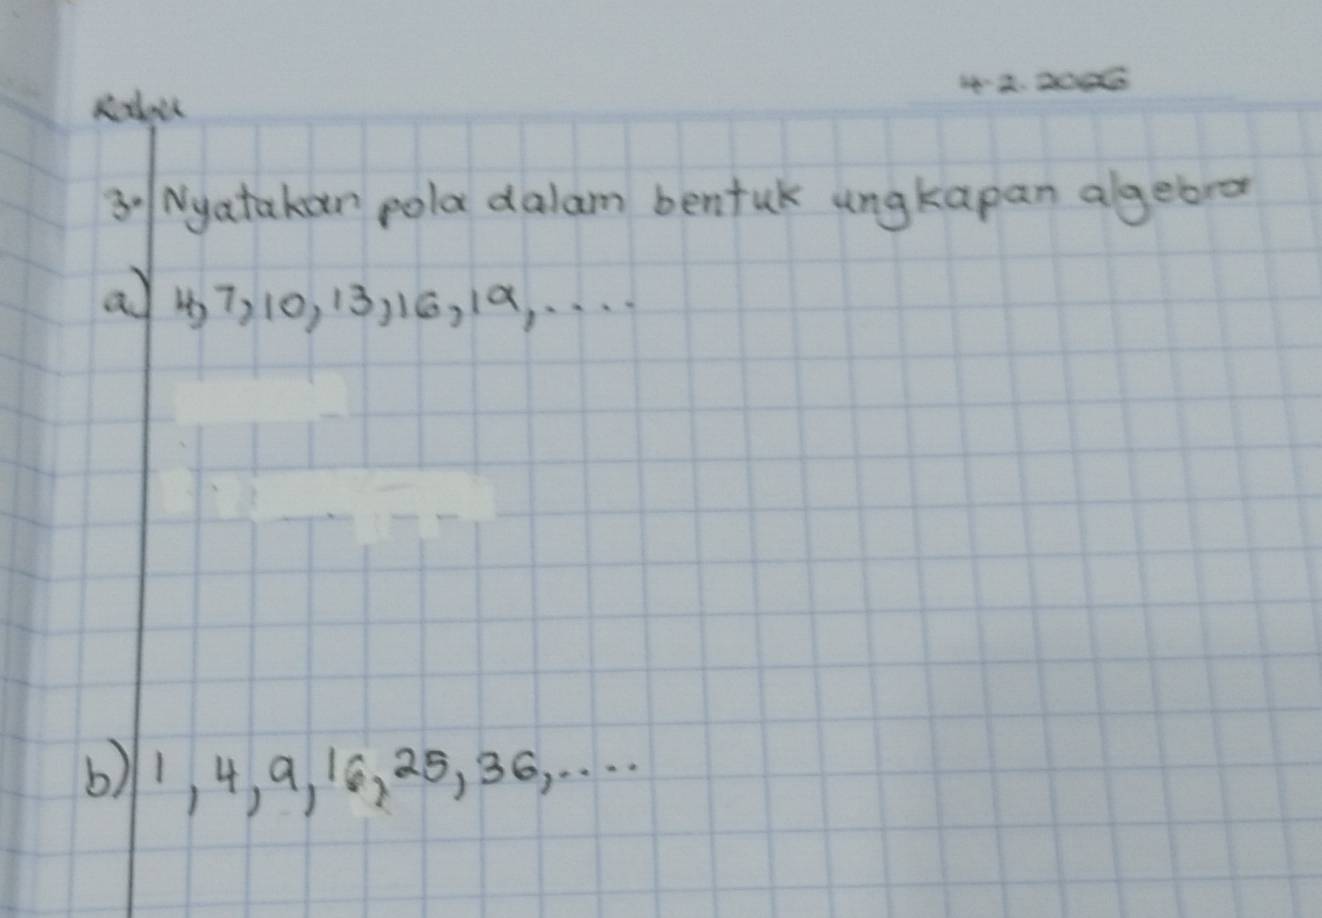 Rabu
4.2.2026
3. Nyatakan pola dalam bentuk ungkapan algebra
a) 4, 7, 10, 13, 16, 19, ....
b) 1, 4, 9, 16, 25, 36, ....